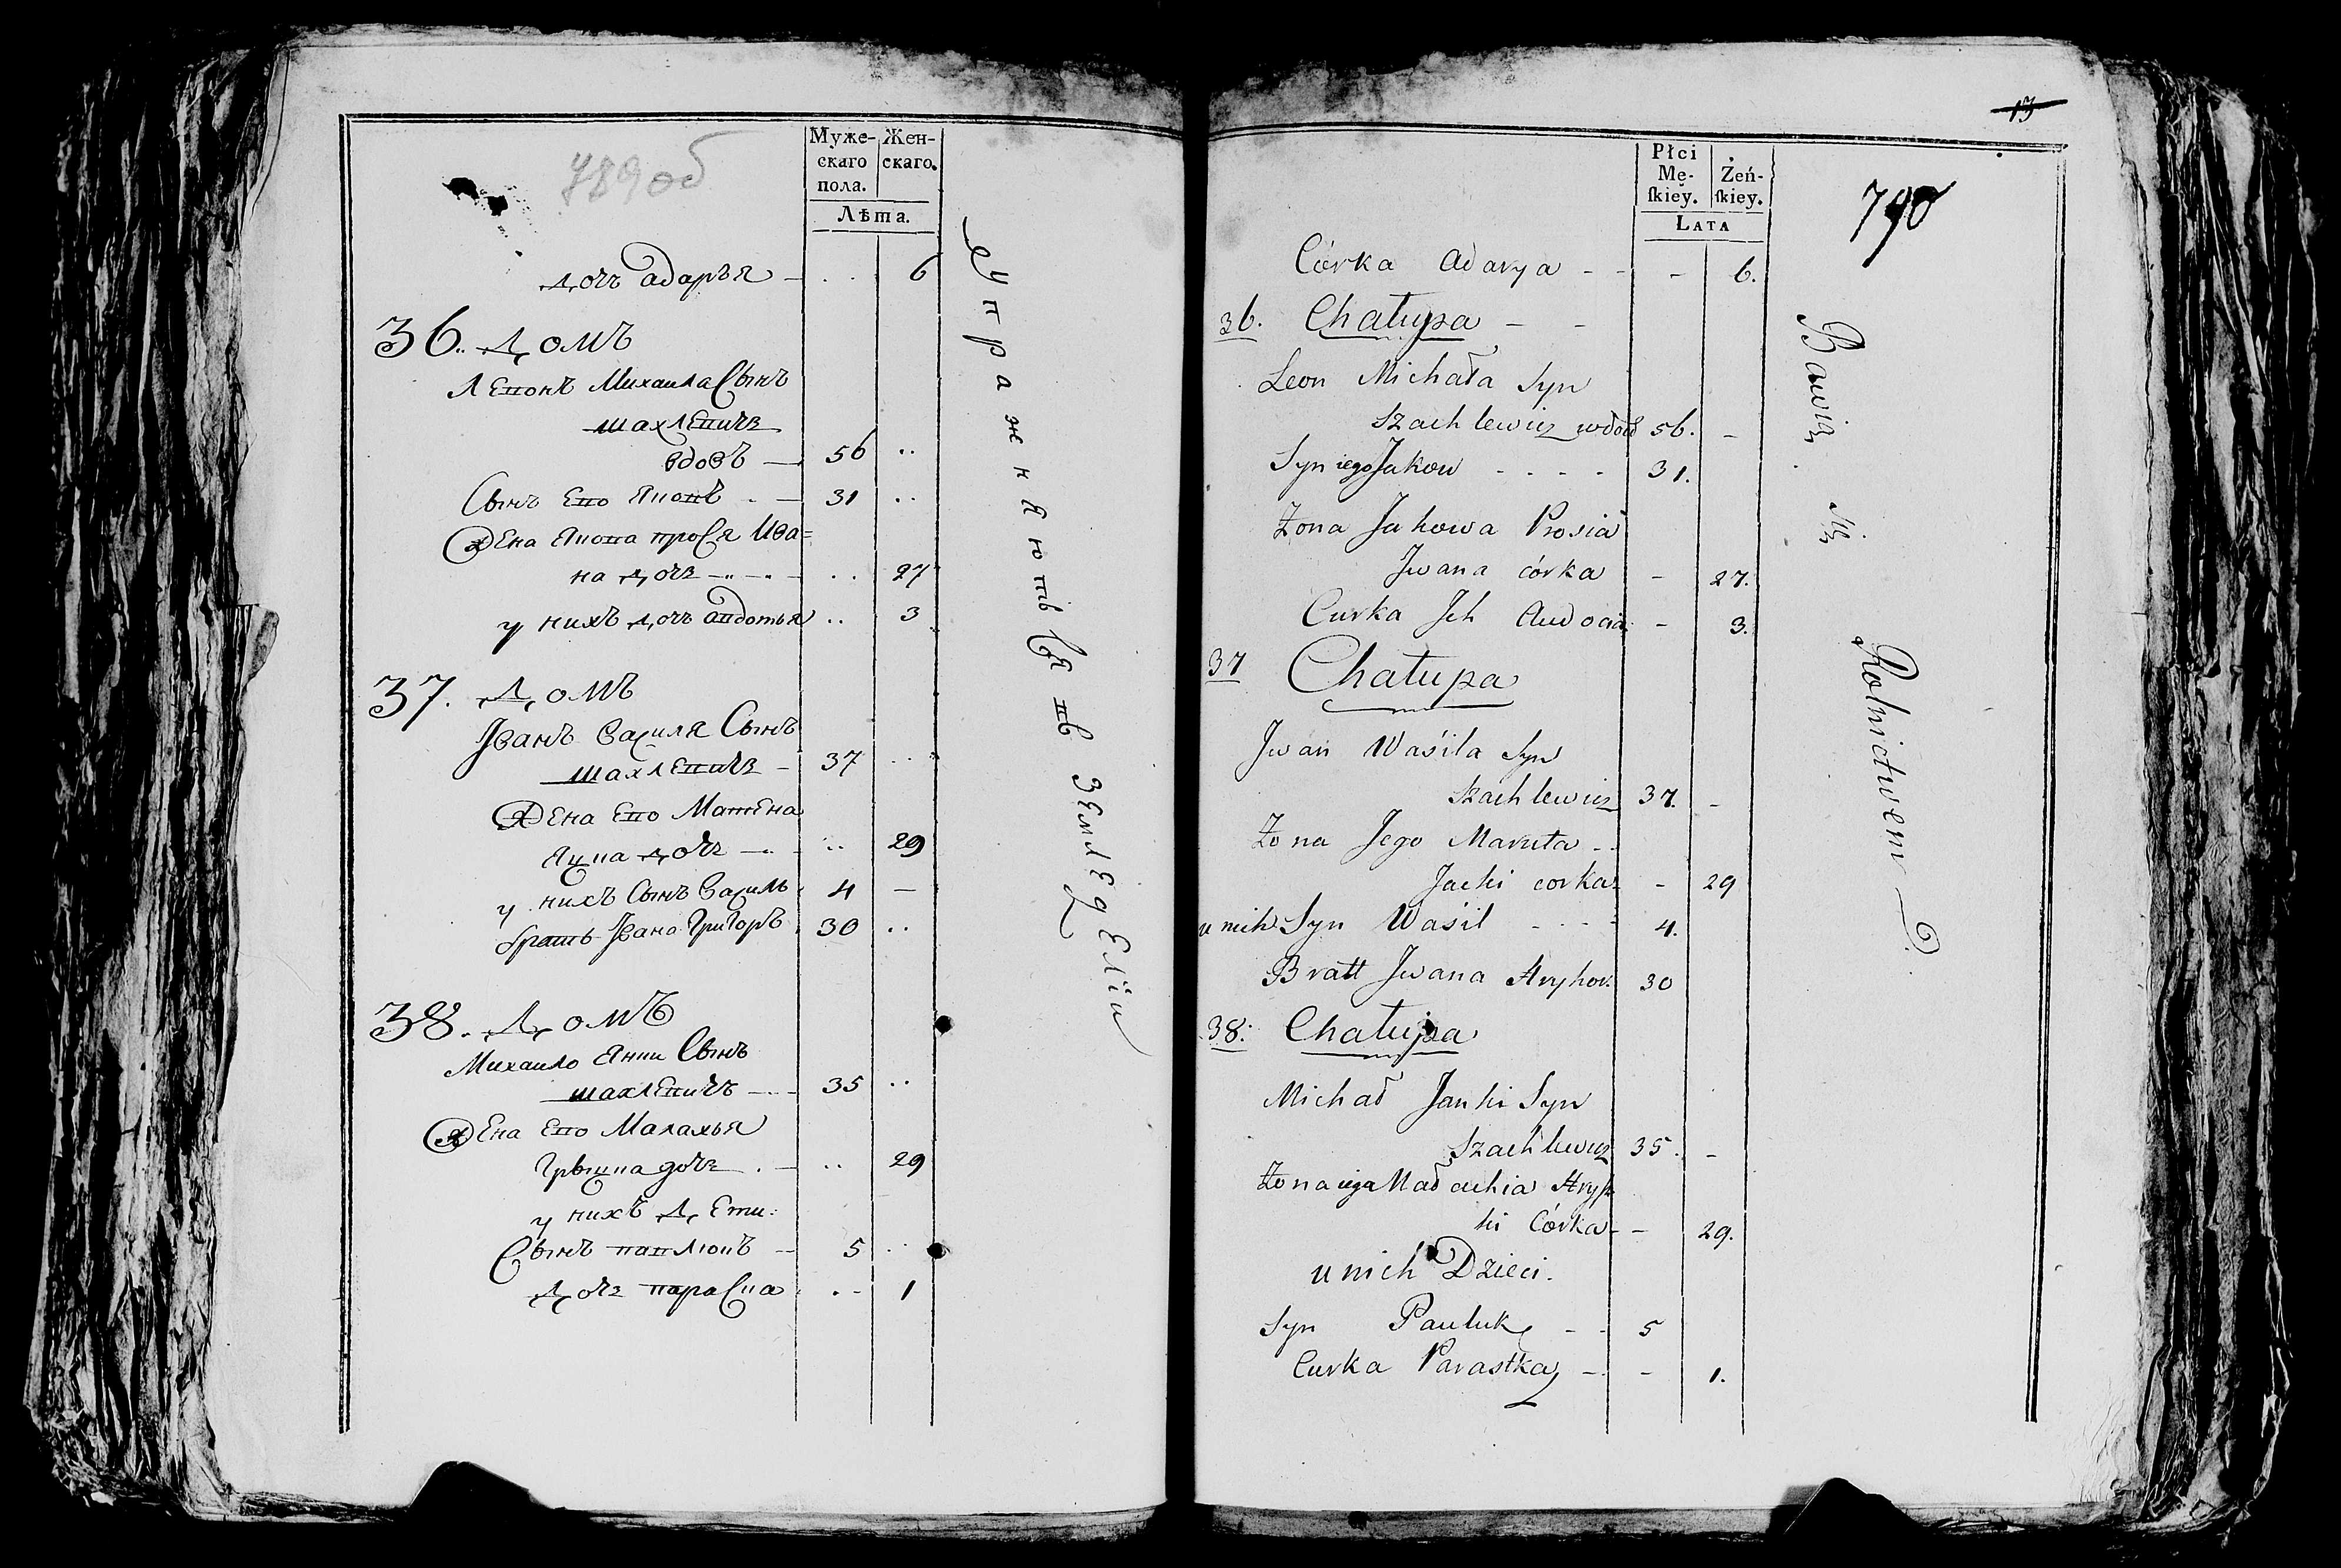 789 об
Муже-
скаго
пола.
Жен-
скаго.
Лѣта.
дочъ адаръя — .. 6
36.. домъ
Левонъ Михаила Сынъ
шахлевичъ
вдовъ — 56 ..
Сынъ Его Яковъ . — 31 ..
Жена Якова прося Ива=
на дочъ — .. — .. 27
у нихъ дочъ авдотья .. 3
37. домъ
Іванъ василя Сынъ
шахлевичъ — 37 ...
Жена Его
Яцка дочъ — .. .. 29
у нихъ Сынъ василь . 4 —
братъ Івана Григоръ . 30 ..
38. домъ
Михаило Янки Сынъ
шахлевичъ — .. — 35 ..
Жена Его Малахья
Грышка дочъ . — .. 29
у нихъ дЕти.
Сынъ павлюкъ — 5 ...
дочъ параска . .. 1
Упражняютъся въ земледЕліи
13
790
Płci
Mę-
ſkiey.
Żeń-
ſkiey.
Lata
Córka Adarya - - - 6.
36. Chałupa - -
Leon Michała Syn
Szachlewicz wdow 56. -
Syn iego Jakow - - - - 31.
Żona Jakowa Prosia
Jwana córka - 27.
Curka Jch Audocia - 3.
37 Chałupa
Jwan Waśila Syn
Szachlewicz 37. -
Żona Jego Maruta - -
Jacki corka - 29
u nich Syn Waśil - - - - 4.
Bratt Jwana Hryhor. 30
38. Chałupa
Michał Janki Syn
Szachlewicz 35. -
Żona iego Małachia Hrysz
ki Córka - - 29.
u nich Dzieci.
Syn Pauluk - - 5
Curka Parastka - - 1.
Bawią się Rolnictwem